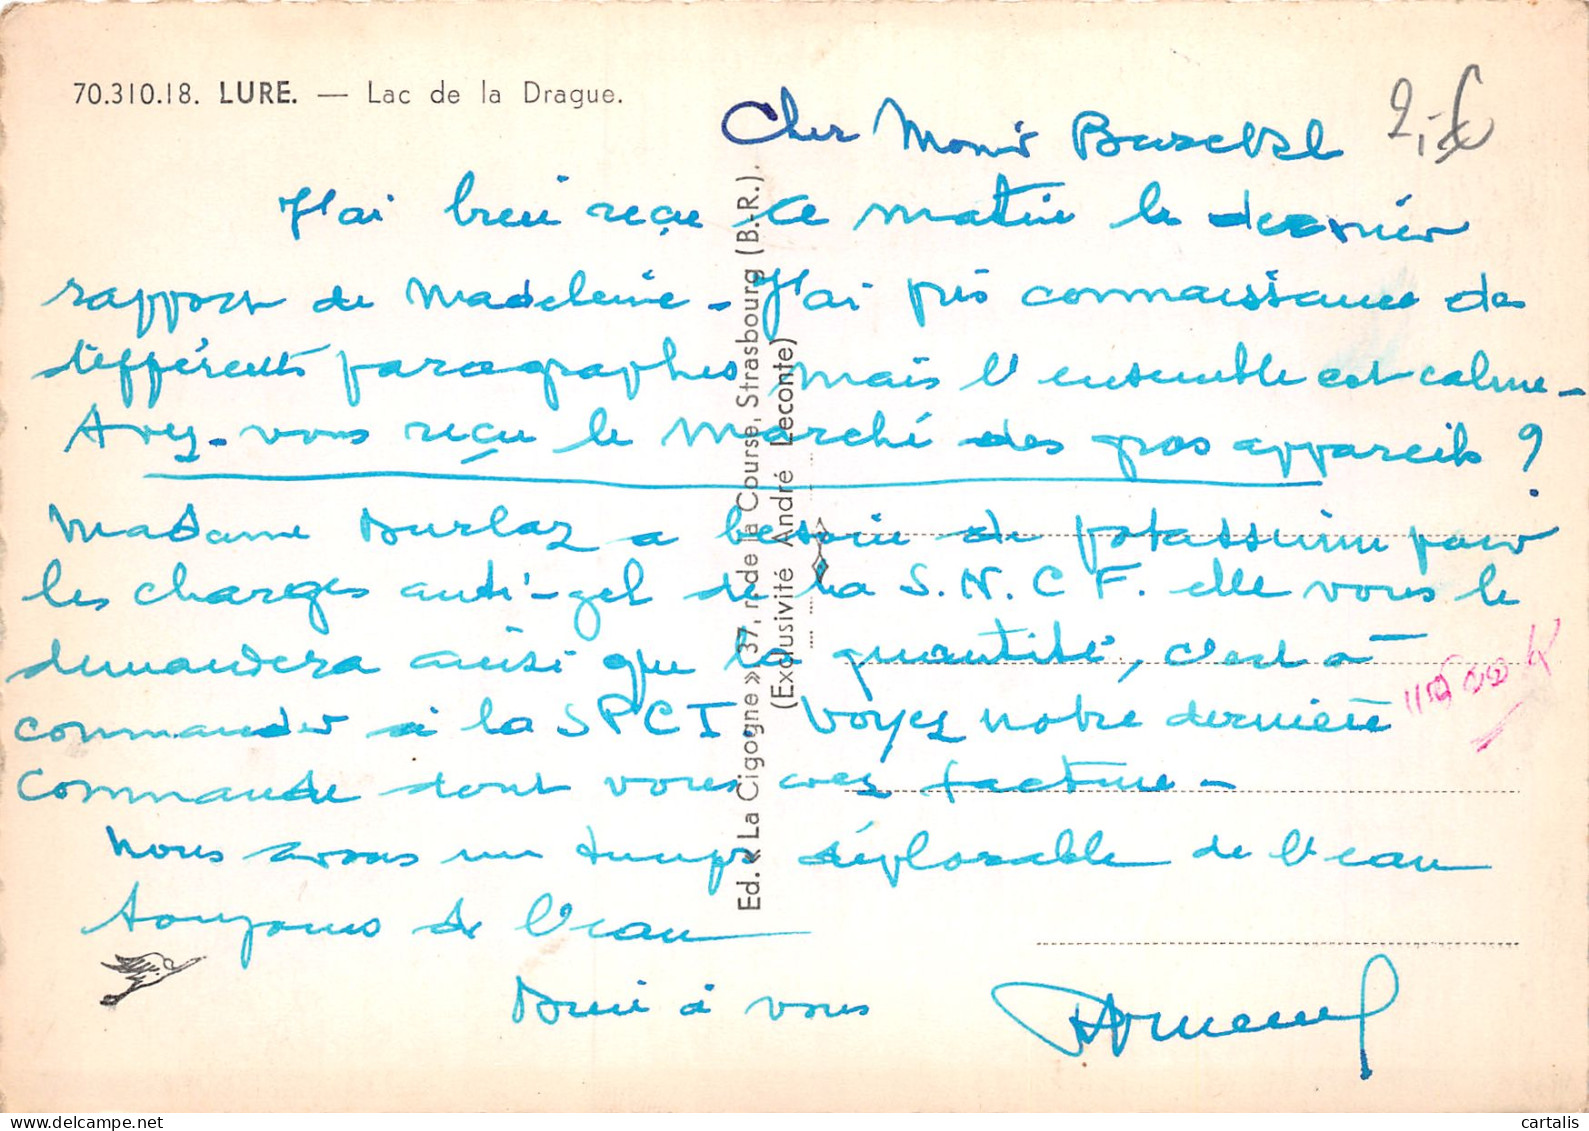 70.310.18. LURE. — Lac de la Drague.
2,-€
Cher
J'ai bien reçu ce matin le dernier
rapport de Madeleine - J'ai pris connaissance des
différents paragraphes mais l'ensemble est calme -
Avez-vous reçu le marché des gros appareils ?
Madame Burlaz a besoin de potassium pour
les charges anti-gel de la S.N.C.F. elle vous le
demandera ainsi que la quantité, c'est à
commander à la SPCI. Voyez notre dernière
commande dont vous avez facture -
Nous avons un temps déplorable de l'eau
toujours de l'eau
Bien à vous
Ed. « La Cigogne » 37, r. de la Course, Strasbourg (B.-R.).
(Exclusivité André Leconte)
cartalis